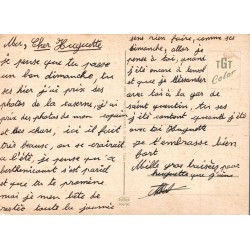 Mer, Cher Huguette
je pense que tu passe
un bon dimanche, tu
ses hier j'ai pris des
photos de la caserne, j'ai
pris des photos de mon copain
et des chars, ici il fait
très beau, on se croirait
a l'été, je pense que a
berthenicourt s'est pareil
et que tu te promène
mai je mon bête de
resté toute la journée
sens rien faire, comme ses
dimanche, aller je
pense à toi, quand
j'été encore à
et que je descendre
avec toi a la gar de
saint quentin, tu ses
j'été comme quand j'été
avec toi Huguette
je t'embrasse bien
fort
Mille gros baisées pour
huguette que j'aime
TGT
Color